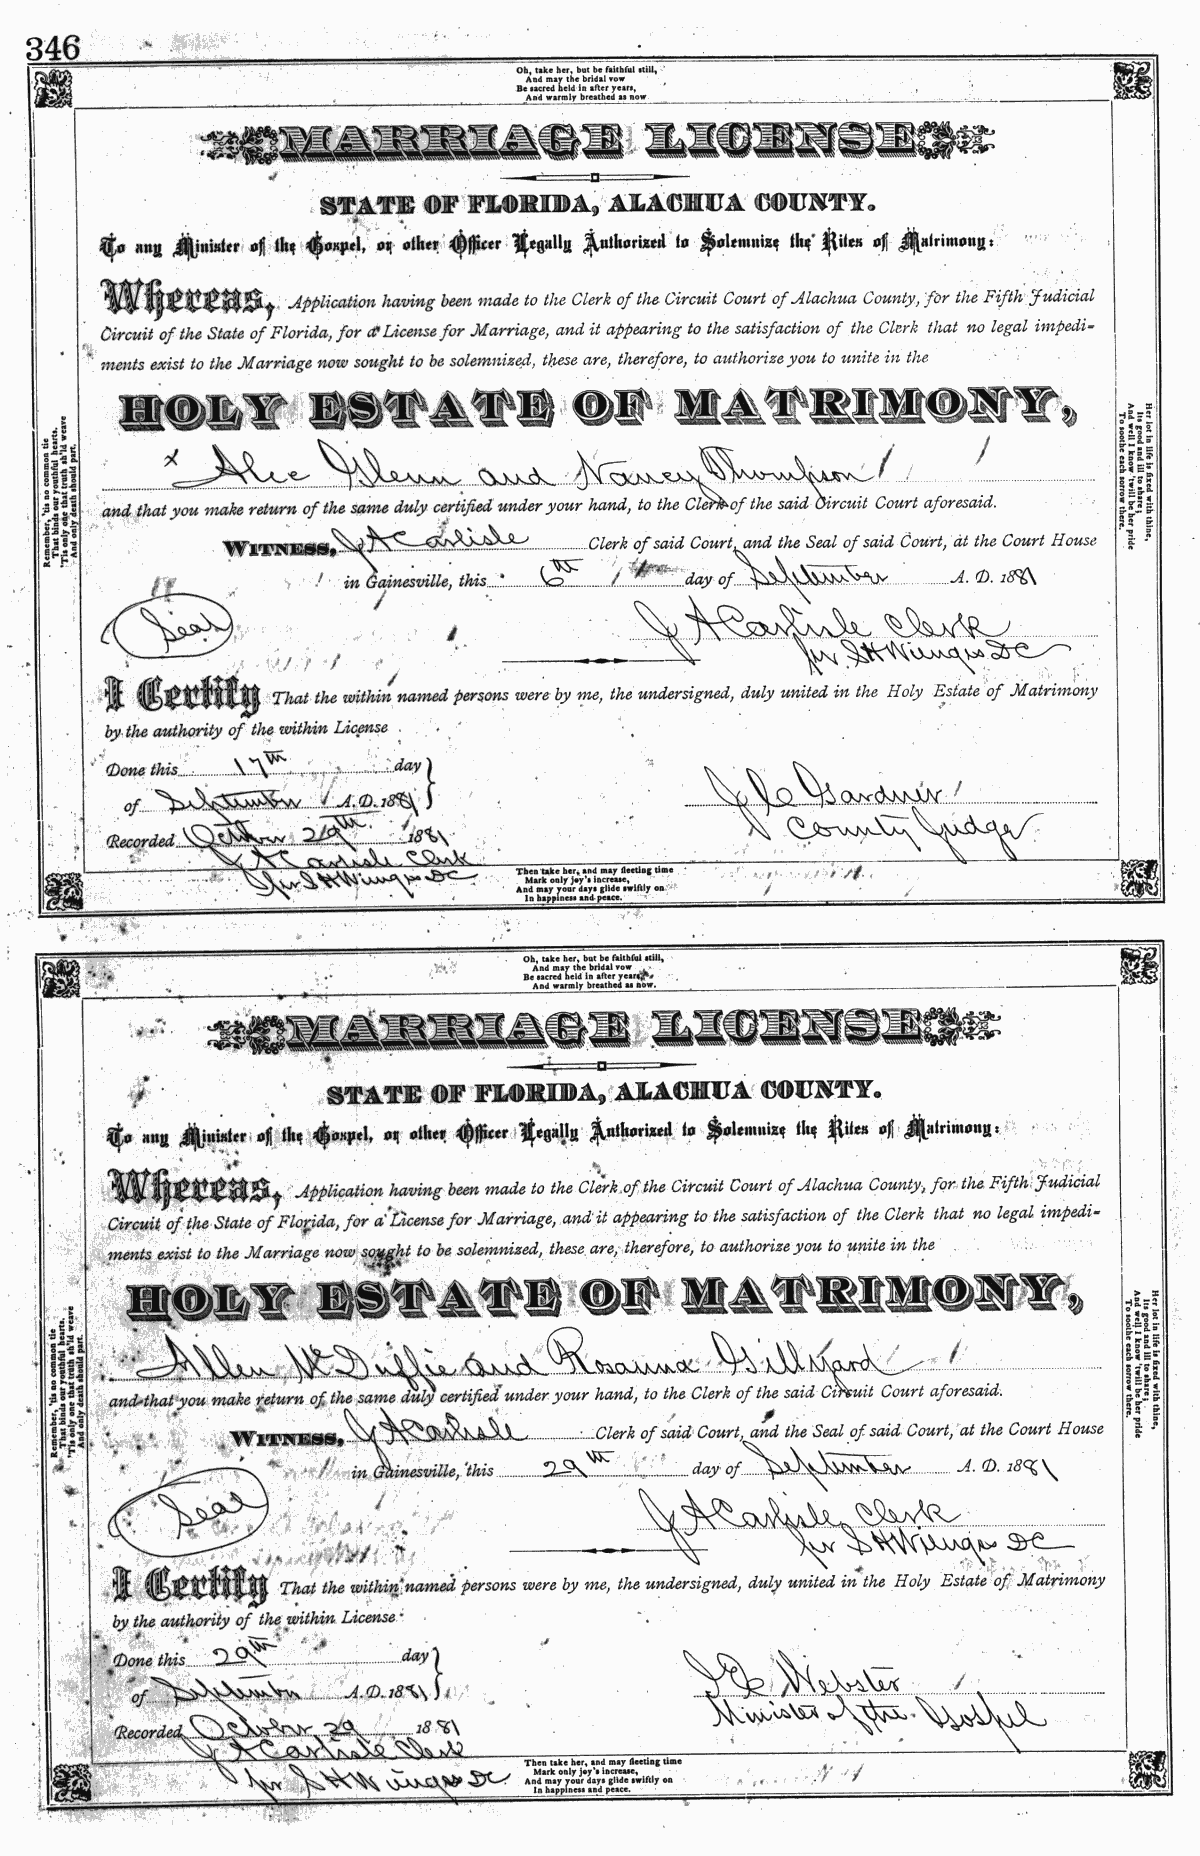 346
Oh, take her, but be faithful still,
And may the bridal vow
Be sacred held in after years,
And warmly breathed as now
MARRIAGE LICENSE
STATE OF FLORIDA, ALACHUA COUNTY.
To any Minister of the Gospel, or other Officer Legally Authorized to Solemnize the Rites of Matrimony:
Whereas, Application having been made to the Clerk of the Circuit Court of Alachua County, for the Fifth Judicial
Circuit of the State of Florida, for a License for Marriage, and it appearing to the satisfaction of the Clerk that no legal impedi-
ments exist to the Marriage now sought to be solemnized, these are, therefore, to authorize you to unite in the
HOLY ESTATE OF MATRIMONY,
x Alec Glenn and Nancy Thompson
and that you make return of the same duly certified under your hand, to the Clerk of the said Circuit Court aforesaid.
WITNESS, J A Carlisle Clerk of said Court, and the Seal of said Court, at the Court House
in Gainesville, this 6th day of September A. D. 1881
Seal
J A Carlisle Clerk
per S H Wienges DC
I Certify That the within named persons were by me, the undersigned, duly united in the Holy Estate of Matrimony
by the authority of the within License
Done this 17th day
of September A. D. 1881
J C Gardner
County Judge
Recorded October 29th 1881
J A Carlisle Clerk
per S H Wienges DC
Then take her, and may fleeting time
Mark only joy's increase,
And may your days glide swiftly on
In happiness and peace.
Remember, 'tis no common tie
That binds our youthful hearts,
'Tis only one that truth sh'ld weave
And only death should part.
Her lot in life is fixed with thine,
Its good and ill to share;
And well I know 'twill be her pride
To soothe each sorrow there.
Oh, take her, but be faithful still,
And may the bridal vow
Be sacred held in after years,
And warmly breathed as now.
MARRIAGE LICENSE
STATE OF FLORIDA, ALACHUA COUNTY.
To any Minister of the Gospel, or other Officer Legally Authorized to Solemnize the Rites of Matrimony:
Whereas, Application having been made to the Clerk of the Circuit Court of Alachua County, for the Fifth Judicial
Circuit of the State of Florida, for a License for Marriage, and it appearing to the satisfaction of the Clerk that no legal impedi-
ments exist to the Marriage now sought to be solemnized, these are, therefore, to authorize you to unite in the
HOLY ESTATE OF MATRIMONY,
Allen McDuffie and Rosanna Gillyard
and that you make return of the same duly certified under your hand, to the Clerk of the said Circuit Court aforesaid.
WITNESS, J A Carlisle Clerk of said Court, and the Seal of said Court, at the Court House
in Gainesville, this 29th day of September A. D. 1881
Seal
J A Carlisle Clerk
per S H Wienges DC
I Certify That the within named persons were by me, the undersigned, duly united in the Holy Estate of Matrimony
by the authority of the within License
Done this 29th day
of September A. D. 1881
Webster
Minister of the Gospel
Recorded October 29 1881
J A Carlisle Clerk
per S H Wienges DC
Then take her, and may fleeting time
Mark only joy's increase,
And may your days glide swiftly on
In happiness and peace.
Remember, 'tis no common tie
That binds our youthful hearts.
'Tis only one that truth sh'ld weave
And only death should part.
Her lot in life is fixed with thine,
Its good and ill to share;
And well I know 'twill be her pride
To soothe each sorrow there.